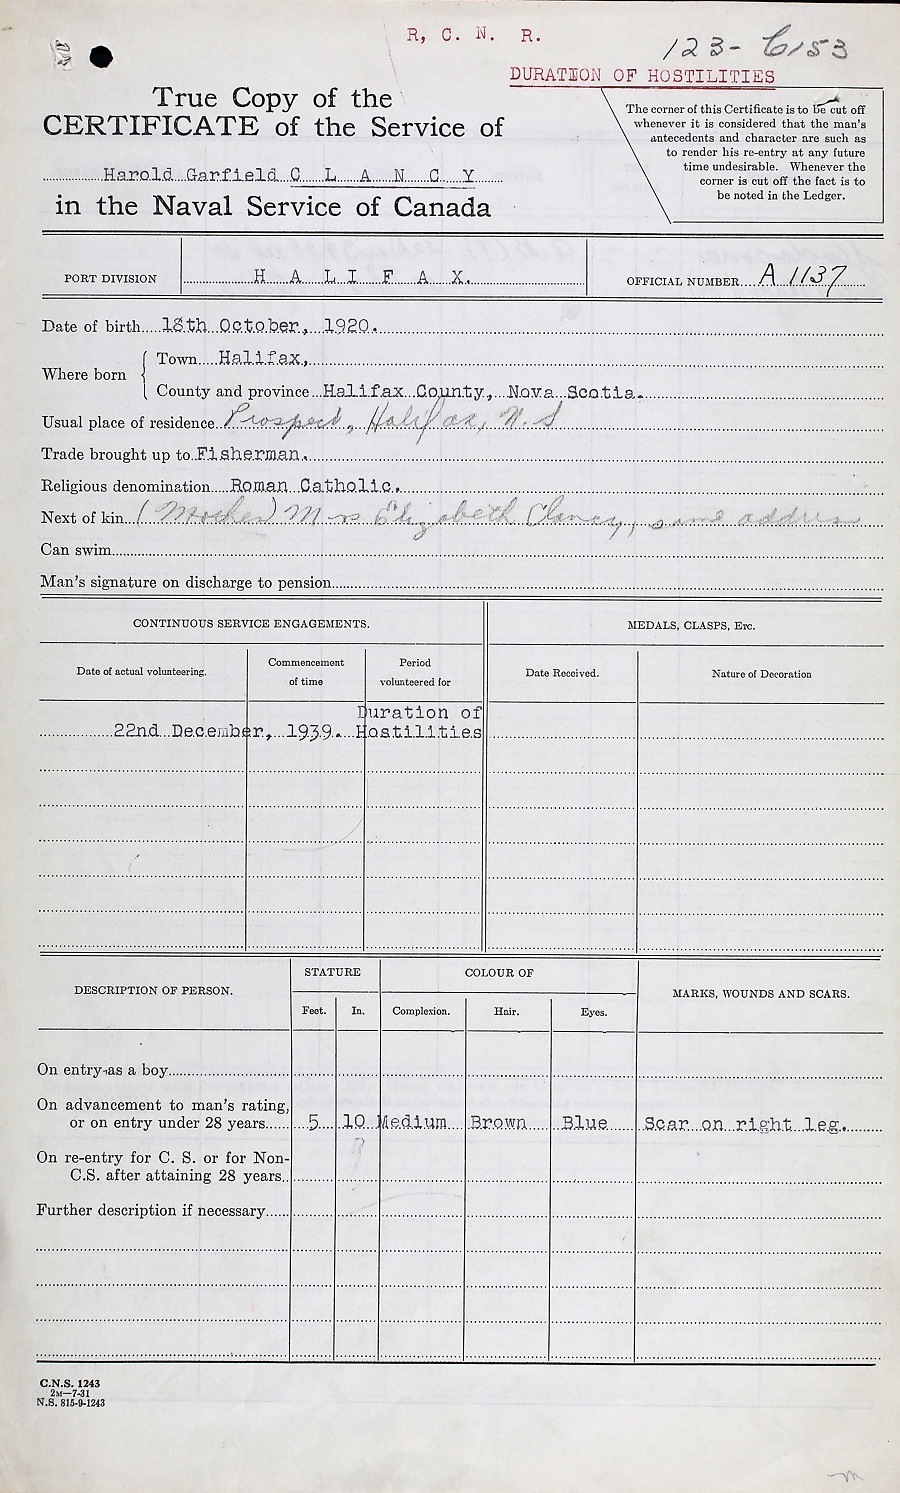 R, C. N. R.
123-C153
DURATION OF HOSTILITIES
True Copy of the
CERTIFICATE of the Service of
Harold Garfield C L A N C Y
in the Naval Service of Canada
The corner of this Certificate is to be cut off
whenever it is considered that the man's
antecedents and character are such as
to render his re-entry at any future
time undesirable. Whenever the
corner is cut off the fact is to
be noted in the Ledger.
PORT DIVISION H A L I F A X. OFFICIAL NUMBER A 1137
Date of birth 18th October, 1920.
Where born
Town Halifax,
County and province Halifax County, Nova Scotia.
Usual place of residence Prospect, Halifax, N.S
Trade brought up to Fisherman.
Religious denomination Roman Catholic.
Next of kin (Mother) Mrs Elizabeth Clancy, same address
Can swim
Man's signature on discharge to pension
CONTINUOUS SERVICE ENGAGEMENTS. MEDALS, CLASPS, Etc.
Date of actual volunteering. Commencement of time Period volunteered for Date Received. Nature of Decoration
Duration of
22nd December, 1939. Hostilities
DESCRIPTION OF PERSON. STATURE COLOUR OF MARKS, WOUNDS AND SCARS.
Feet. In. Complexion. Hair. Eyes.
On entry as a boy
On advancement to man's rating,
or on entry under 28 years 5 10 Medium Brown Blue Scar on right leg.
On re-entry for C. S. or for Non-
C.S. after attaining 28 years
Further description if necessary
C.N.S. 1243
2M—7-31
N.S. 815-9-1243